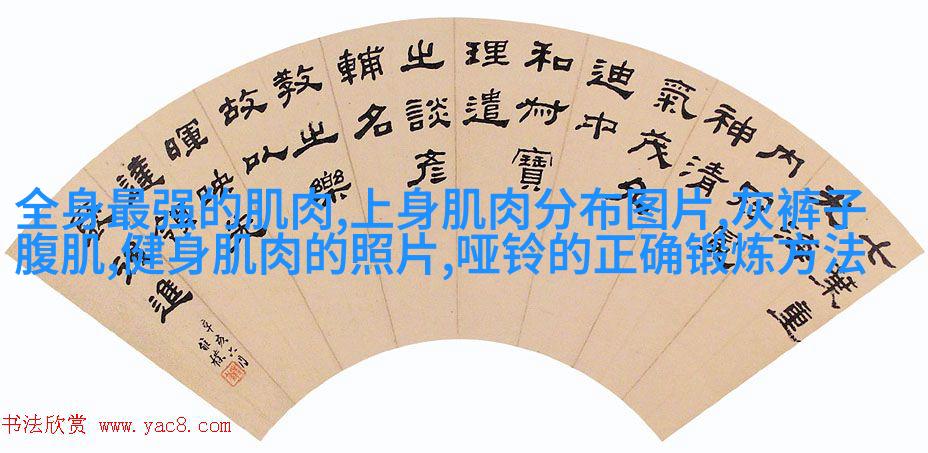 七葉重
內
神清
氣茂
迪中
和寶
理遣
之談彥
輔名
教之樂
故以
暉映
達進
辛亥六月
全身最强的肌肉,上身肌肉分布图片,灰裤子
腹肌,健身肌肉的照片,哑铃的正确锻炼方法
书法欣赏 www.yac8.com